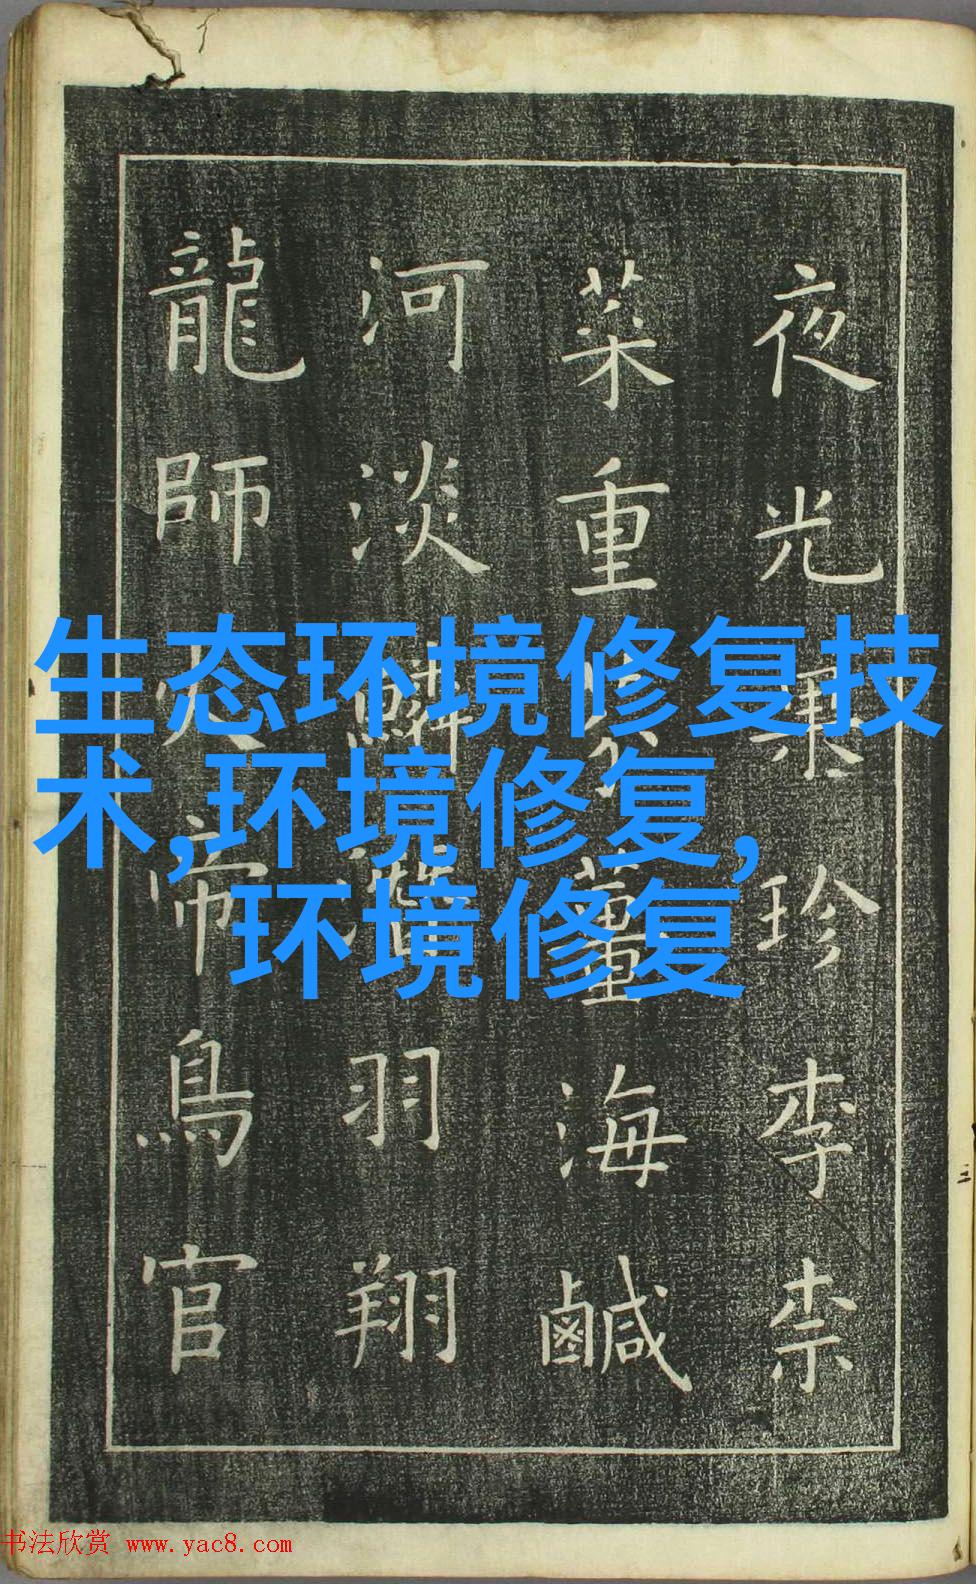 生态环境修复技
术,环境修复,
环境修复
夜光果珍李柰
菜重芥薑海鹹
河淡鱗潛羽翔
龍師火帝鳥官
书法欣赏 www.yac8.com